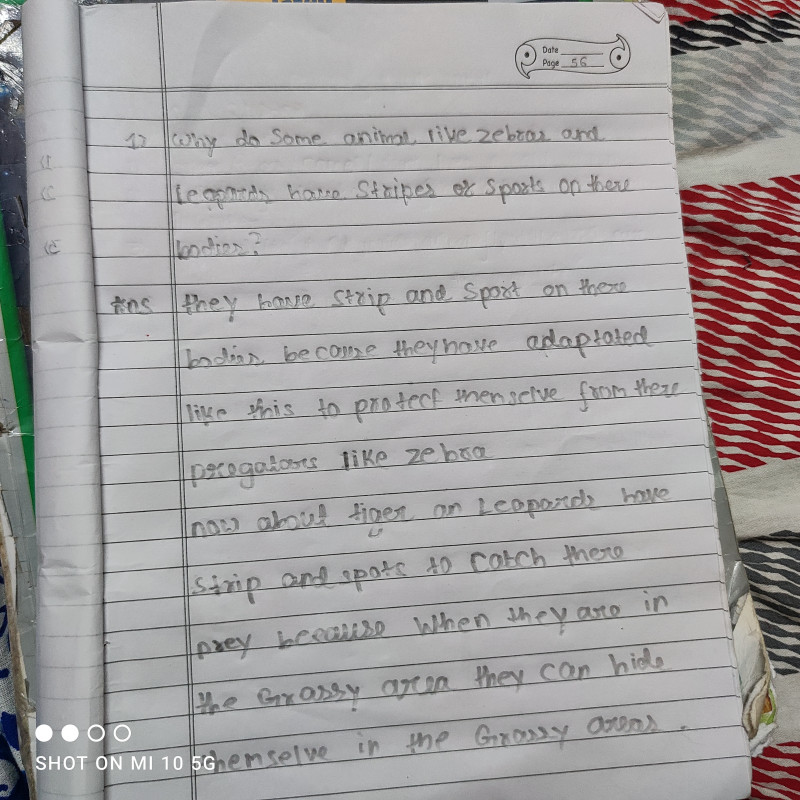 Date
Page 56
1) Why do Some animal like zebras and
Leopards have Stripes or Sports on there
bodies?
Ans they have strip and Sport on there
bodies because they have adaptated
like this to protect themselve from there
progators like zebra
now about tiger an Leopards have
strip and spots to catch there
prey because when they are in
the Grassy area they can hide
themselve in the Grassy areas.
SHOT ON MI 10 5G